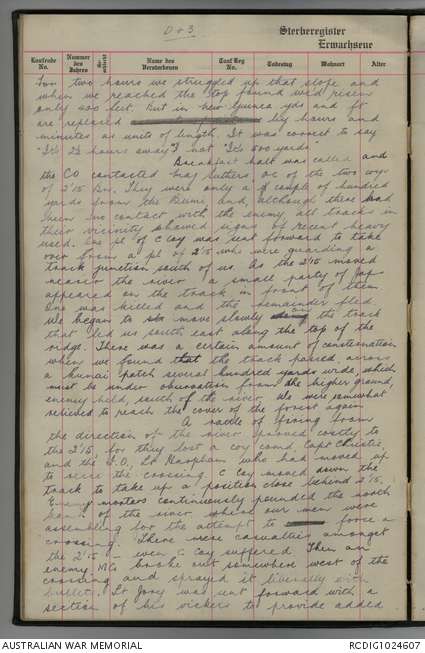 D+3
Sterberegister
Erwachsene
Laufende No.
Nummer des Jahres
Name des Verstorbenen
Conf Reg No.
Todestag
Wohnort
Alter
For two hours we struggled up that slope and
when we reached the top found we'd risen
only 500 feet. But in New Guinea yds and ft
are replaced by hours and
minutes as units of length. It was correct to say
"It's 2½ hours away" not "It's 500 yards"
Breakfast halt was called and
the CO contacted Maj Suthers, oc of the two coys
of 2/15 Bn. They were only a couple of hundred
yards from the Bumi and, although there had
been no contact with the enemy, all tracks in
their vicinity showed signs of recent heavy
used. One pl of C Coy was sent forward to take
over from a pl of 2/15 who were guarding a
track junction south of us. As the 2/15 moved
nearer the river a small party of Japs
appeared on the track in front of them
One was killed and the remainder fled
We began to move slowly on the track
that led us south east along the top of the
ridge. There was a certain amount of consternation
when we found that the track passed across
a kunai patch several hundred yards wide, which
must be under observation from the higher ground,
enemy held, south of the river. We were somewhat
relieved to reach the cover of the forest again
A rattle of firing from
the direction of the river proved costly to
the 2/15, for they lost a coy comd Capt Christie
and the I.O., Lt, who had moved up
to recce the crossing C Coy moved down the
track to take up a position close behind 2/15.
Enemy mortars continuously pounded the north
bank of the river where our men were
assembling for the attempt to force a
crossing. There were casualties amongst
the 2/15 – even C Coy suffered. Then an
enemy MG broke out somewhere west of the
crossing and sprayed it liberally with
bullets. Lt was sent forward with a
section of his vickers to provide added
AUSTRALIAN WAR MEMORIAL
RCDIG1024607